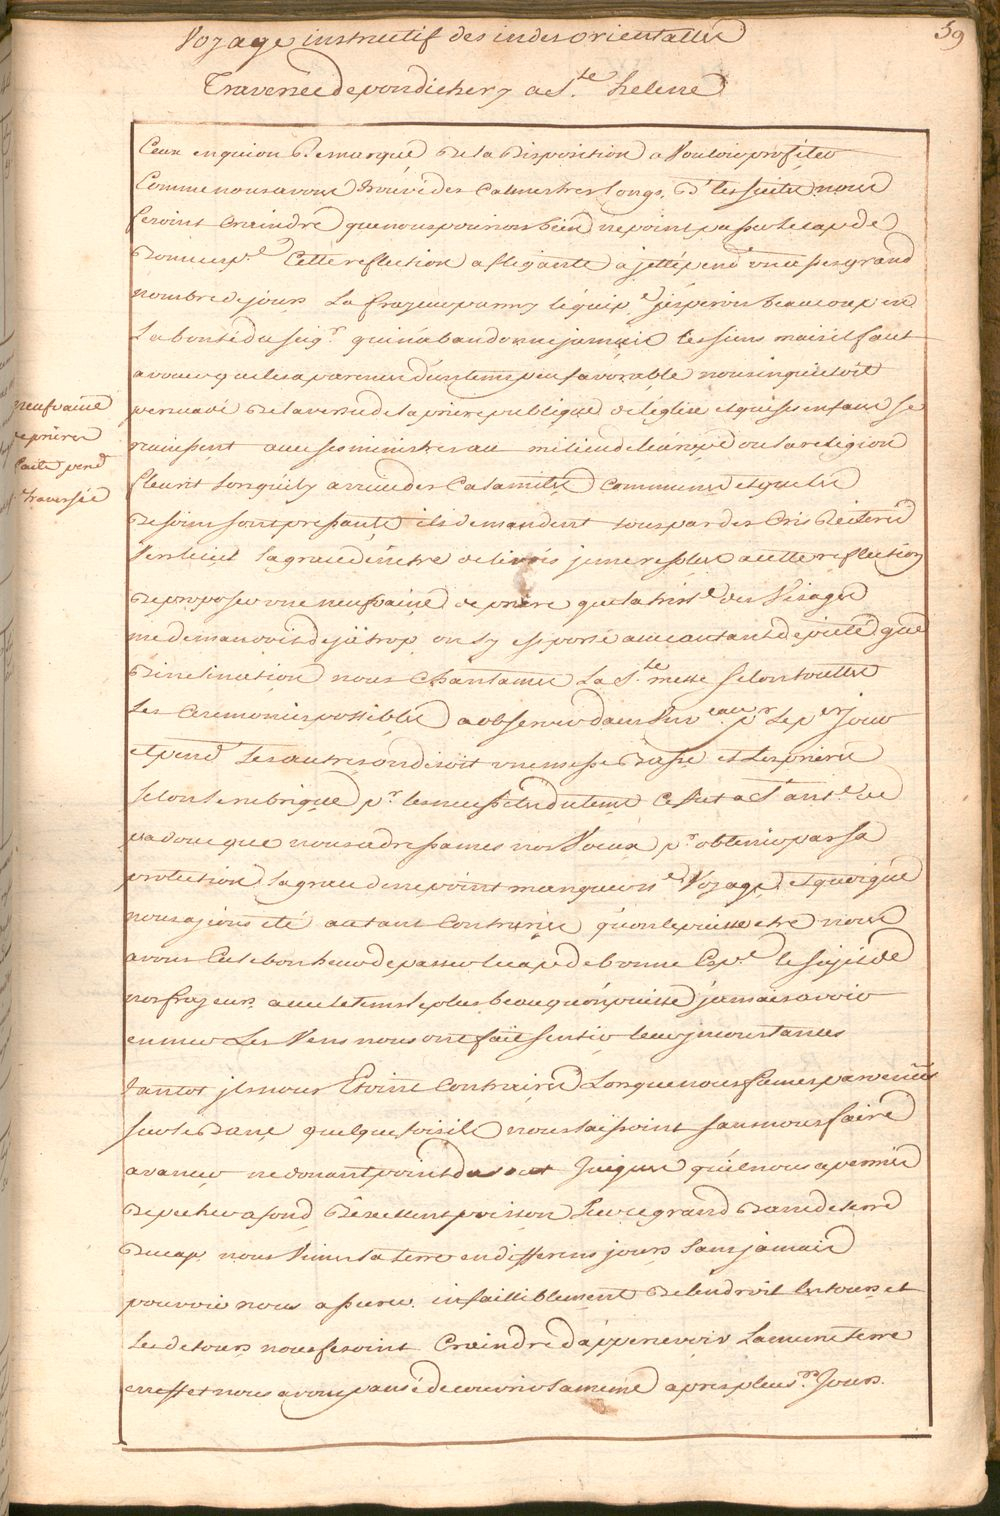 Voyage instructif des indes orientalles
59
Traversée de pondichery a Ste helene
Ceux en qui on Remarque De la Disposition a Vouloir profiter
Comme nous avons trouvé des Calmes tres longs, Et les suites nous
feroint Craindre que nous pourions bien ne point passer le cap de
Bonne espce Cette reflection affligeante a jetté pendt un assez grand
nombre de jours La frayeur parmy l'equipe j'esperois beaucoup en
La bonté du seigr qui n'abandonne jamais les siens mais il faut
avouer que les aparences d'un tems peu favorable nous inquietoit
persuadé De la vertu de la priere publique de l'eglise et que ses enfans se
reunissent avec ses ministres au milieu de l'europe ou la religion
fleurit Lorsqu'il y arrive des Calamités Communes et que les
Besoins sont pressants ils demandent tous par des Cris Reiterés
Vers le ciel la grace d'en etre delivrés je me resolus a cette reflection
De proposer une neufvaine de priere que la tristesse des Visages
me demandoit deja trop on s'y est porté avec autant de pieté que
D'inclination nous Chantames La Ste messe selon toutes
Les Ceremonies possibles a observer dans un veau pr Le per jour
et pendt Les autres on disoit une messe Basse et Les prieres
selon le rubrique pr les necessités du tems Ce fut a St anthe de
padoue que nous adressames nos Voeux pr obtenir par sa
protection la grace de ne point manquer ne Voyage et quoique
nous ajions eté autant Contrariés qu'on le puisse etre nous
avons Eu le bonheur de passer le cap de bonne Espce le sujet de
nos frayeurs avec le tems le plus beau qu'on puisse jamais avoir
en mer Les Vens nous ont fait sentir leur inconstances
tantot ils nous Etoint Contraires Lorsque nous fumes parvenus
sur le Banc quelque fois ils nous laissoint sans nous faire
avancer ne donant point du tout jusques qu'il nous a permis
De pecher a fond D'excellent poisson sur ce grand Banc de terre
Du cap nous Vimes la terre en differens jours sans jamais
pouvoir nous assurer infailliblement De l'endroit les tours et
Les detours nous fesoint Craindre d'appercevoir La meme terre
en effet nous avons pensé decouvrir la meme apres pleusrs jours.
neufvaine
de prieres
faite pendt
la traversée